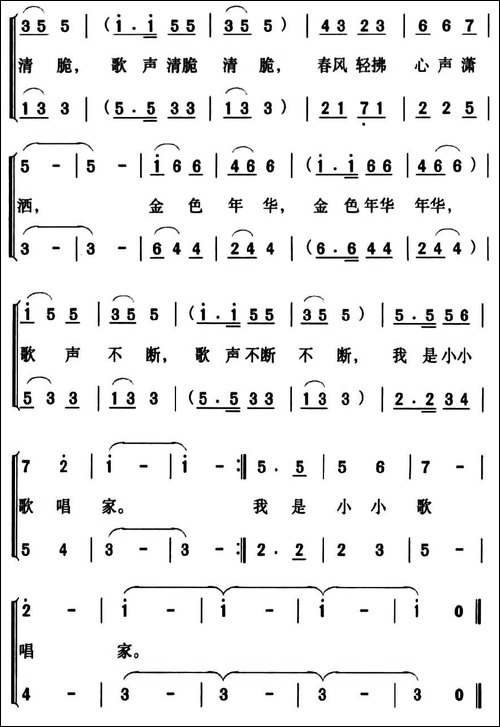 3 5 5 | ( i . i 5 5 | 3 5 5 ) | 4 3 2 3 | 6 6 7 |
清 脆， 歌 声 清脆 清 脆， 春风 轻拂 心 声 潇
1 3 3 | ( 5 . 5 3 3 | 1 3 3 ) | 2 1 7 1 | 2 2 5 |
5 - | 5 - | i 6 6 | 4 6 6 | ( i . i 6 6 | 4 6 6 ) |
洒， 金 色 年 华， 金 色 年华 年华，
3 - | 3 - | 6 4 4 | 2 4 4 | ( 6 . 6 4 4 | 2 4 4 ) |
i 5 5 | 3 5 5 | ( i . i 5 5 | 3 5 5 ) | 5 . 5 5 6 |
歌 声 不 断， 歌 声不断 不 断， 我 是小小
5 3 3 | 1 3 3 | ( 5 . 5 3 3 | 1 3 3 ) | 2 . 2 3 4 |
7 2 | i - | i - :‖ 5 . 5 | 5 6 | 7 - |
歌 唱 家。 我 是 小 小 歌
5 4 | 3 - | 3 - :‖ 2 . 2 | 2 3 | 5 - |
2 - | i - | i - | i - | i 0 ‖
唱 家。
4 - | 3 - | 3 - | 3 - | 3 0 ‖